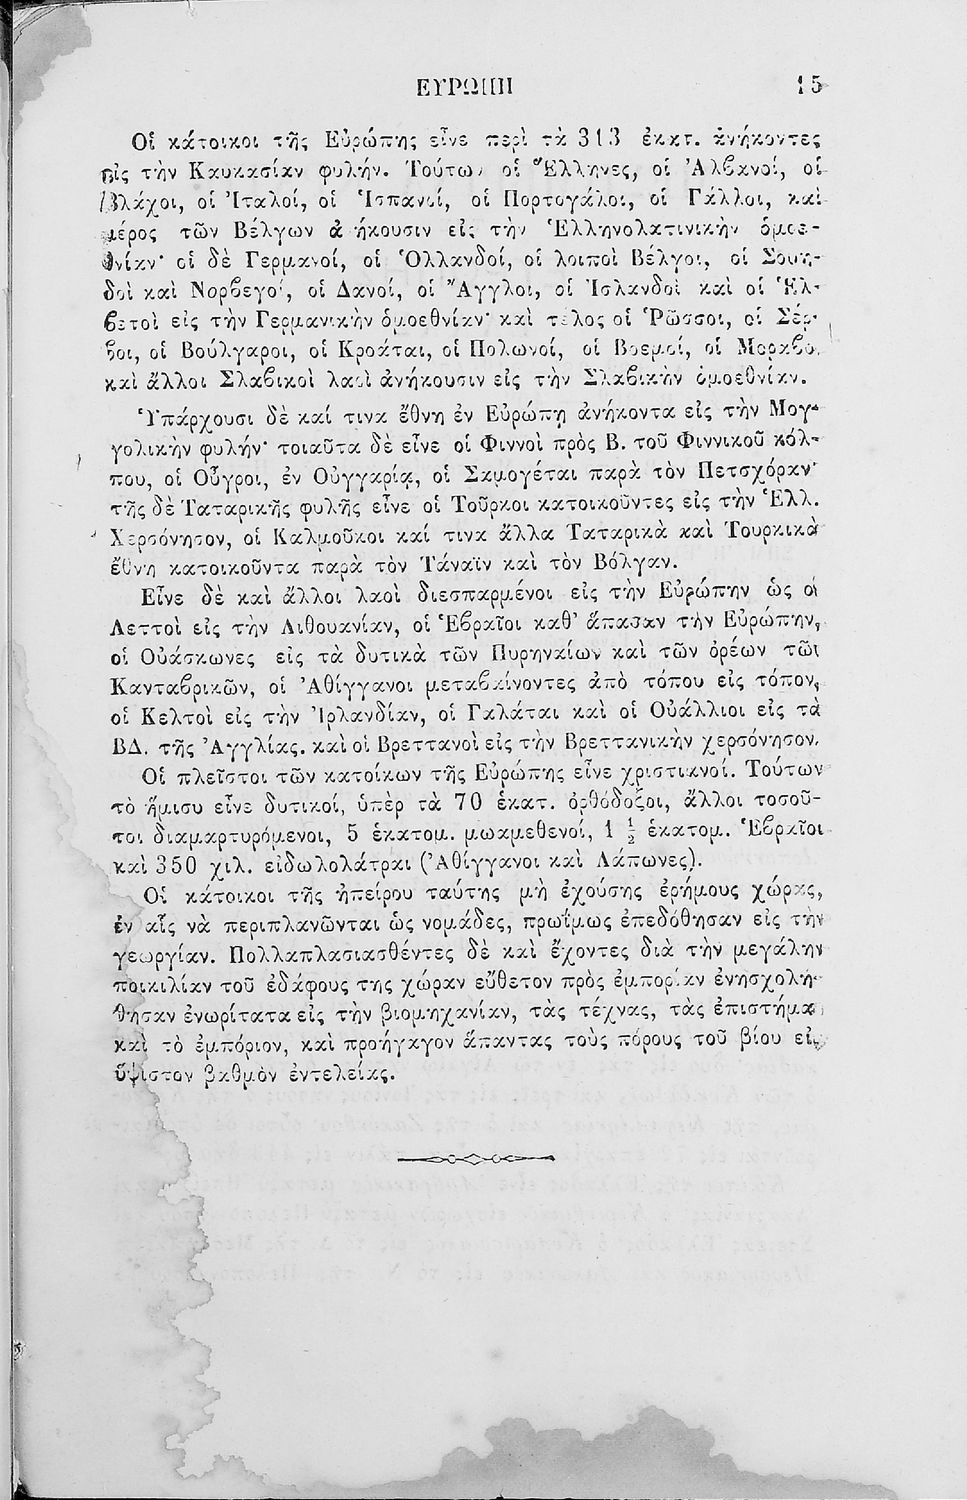 ΕΥΡΩΠΗ 15
Οἱ κάτοικοι τῆς Εὐρώπης εἶνε περὶ τὰ 313 ἑκατ. ἀνήκοντες
εἰς τὴν Καυκασίαν φυλήν. Τούτων οἱ Ἕλληνες, οἱ Ἀλβανοί, οἱ
Βλάχοι, οἱ Ἰταλοί, οἱ Ἱσπανοί, οἱ Πορτογάλοι, οἱ Γάλλοι, καὶ
μέρος τῶν Βέλγων ἀνήκουσιν εἰς τὴν Ἑλληνολατινικὴν ὁμοε-
θνίαν· οἱ δὲ Γερμανοί, οἱ Ὁλλανδοί, οἱ λοιποὶ Βέλγοι, οἱ Σουη-
δοὶ καὶ Νορβεγοί, οἱ Δανοί, οἱ Ἄγγλοι, οἱ Ἰσλανδοὶ καὶ οἱ Ἑλ-
βετοὶ εἰς τὴν Γερμανικὴν ὁμοεθνίαν· καὶ τέλος οἱ Ῥῶσσοι, οἱ Σέρ-
βοι, οἱ Βούλγαροι, οἱ Κροάται, οἱ Πολωνοί, οἱ Βοεμοί, οἱ Μοραβοί,
καὶ ἄλλοι Σλαβικοὶ λαοὶ ἀνήκουσιν εἰς τὴν Σλαβικὴν ὁμοεθνίαν.
Ὑπάρχουσι δὲ καί τινα ἔθνη ἐν Εὐρώπῃ ἀνήκοντα εἰς τὴν Μογ-
γολικὴν φυλήν· τοιαῦτα δὲ εἶνε οἱ Φιννοὶ πρὸς Β. τοῦ Φιννικοῦ κόλ-
που, οἱ Οὖγροι, ἐν Οὐγγαρίᾳ, οἱ Σαμογέται παρὰ τὸν Πετσχόραν·
τῆς δὲ Ταταρικῆς φυλῆς εἶνε οἱ Τοῦρκοι κατοικοῦντες εἰς τὴν Ἑλλ.
Χερσόνησον, οἱ Καλμοῦκοι καί τινα ἄλλα Ταταρικὰ καὶ Τουρκικὰ
ἔθνη κατοικοῦντα παρὰ τὸν Τάναϊν καὶ τὸν Βόλγαν.
Εἶνε δὲ καὶ ἄλλοι λαοὶ διεσπαρμένοι εἰς τὴν Εὐρώπην ὡς οἱ
Λεττοὶ εἰς τὴν Λιθουανίαν, οἱ Ἑβραῖοι καθ’ ἅπασαν τὴν Εὐρώπην,
οἱ Οὐάσκωνες εἰς τὰ δυτικὰ τῶν Πυρηναίων καὶ τῶν ὀρέων τῶν
Κανταβρικῶν, οἱ Ἀθίγγανοι μεταβαίνοντες ἀπὸ τόπου εἰς τόπον,
οἱ Κελτοὶ εἰς τὴν Ἰρλανδίαν, οἱ Γαλάται καὶ οἱ Οὐάλλιοι εἰς τὰ
ΒΔ. τῆς Ἀγγλίας. καὶ οἱ Βρεττανοὶ εἰς τὴν Βρεττανικὴν χερσόνησον.
Οἱ πλεῖστοι τῶν κατοίκων τῆς Εὐρώπης εἶνε χριστιανοί. Τούτων
τὸ ἥμισυ εἶνε δυτικοί, ὑπὲρ τὰ 70 ἑκατ. ὀρθόδοξοι, ἄλλοι τοσοῦ-
τοι διαμαρτυρόμενοι, 5 ἑκατομ. μωαμεθενοί, 1 ½ ἑκατομ. Ἑβραῖοι
καὶ 350 χιλ. εἰδωλολάτραι (Ἀθίγγανοι καὶ Λάπωνες).
Οἱ κάτοικοι τῆς ἠπείρου ταύτης μὴ ἐχούσης ἐρήμους χώρας,
ἐν αἷς νὰ περιπλανῶνται ὡς νομάδες, πρωΐμως ἐπεδόθησαν εἰς τὴν
γεωργίαν. Πολλαπλασιασθέντες δὲ καὶ ἔχοντες διὰ τὴν μεγάλην
ποικιλίαν τοῦ ἐδάφους της χώραν εὔθετον πρὸς ἐμπορίαν ἐνησχολή-
θησαν ἐνωρίτατα εἰς τὴν βιομηχανίαν, τὰς τέχνας, τὰς ἐπιστήμας
καὶ τὸ ἐμπόριον, καὶ προήγαγον ἅπαντας τοὺς πόρους τοῦ βίου εἰς
ὕψιστον βαθμὸν ἐντελείας.